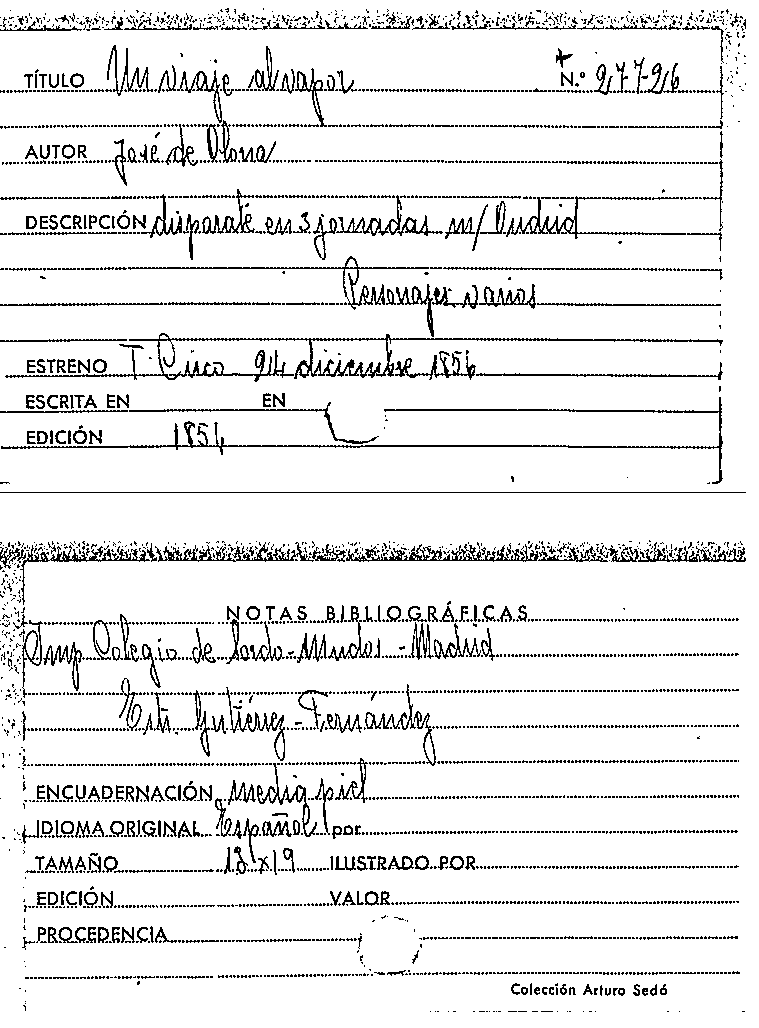 TÍTULO Un viaje al vapor N.º 27726
AUTOR José de Olona
DESCRIPCIÓN disparate en 3 jornadas m/ Oudrid
Personajes varios
ESTRENO T. Circo 24 diciembre 1856
ESCRITA EN EN
EDICIÓN 1856
NOTAS BIBLIOGRÁFICAS
Imp Colegio de Sordo-Mudos - Madrid
Estr. Gutiérrez - Fernández
ENCUADERNACIÓN media piel
IDIOMA ORIGINAL Español por
TAMAÑO 13 x 19 ILUSTRADO POR
EDICIÓN VALOR
PROCEDENCIA
Colección Arturo Sedó